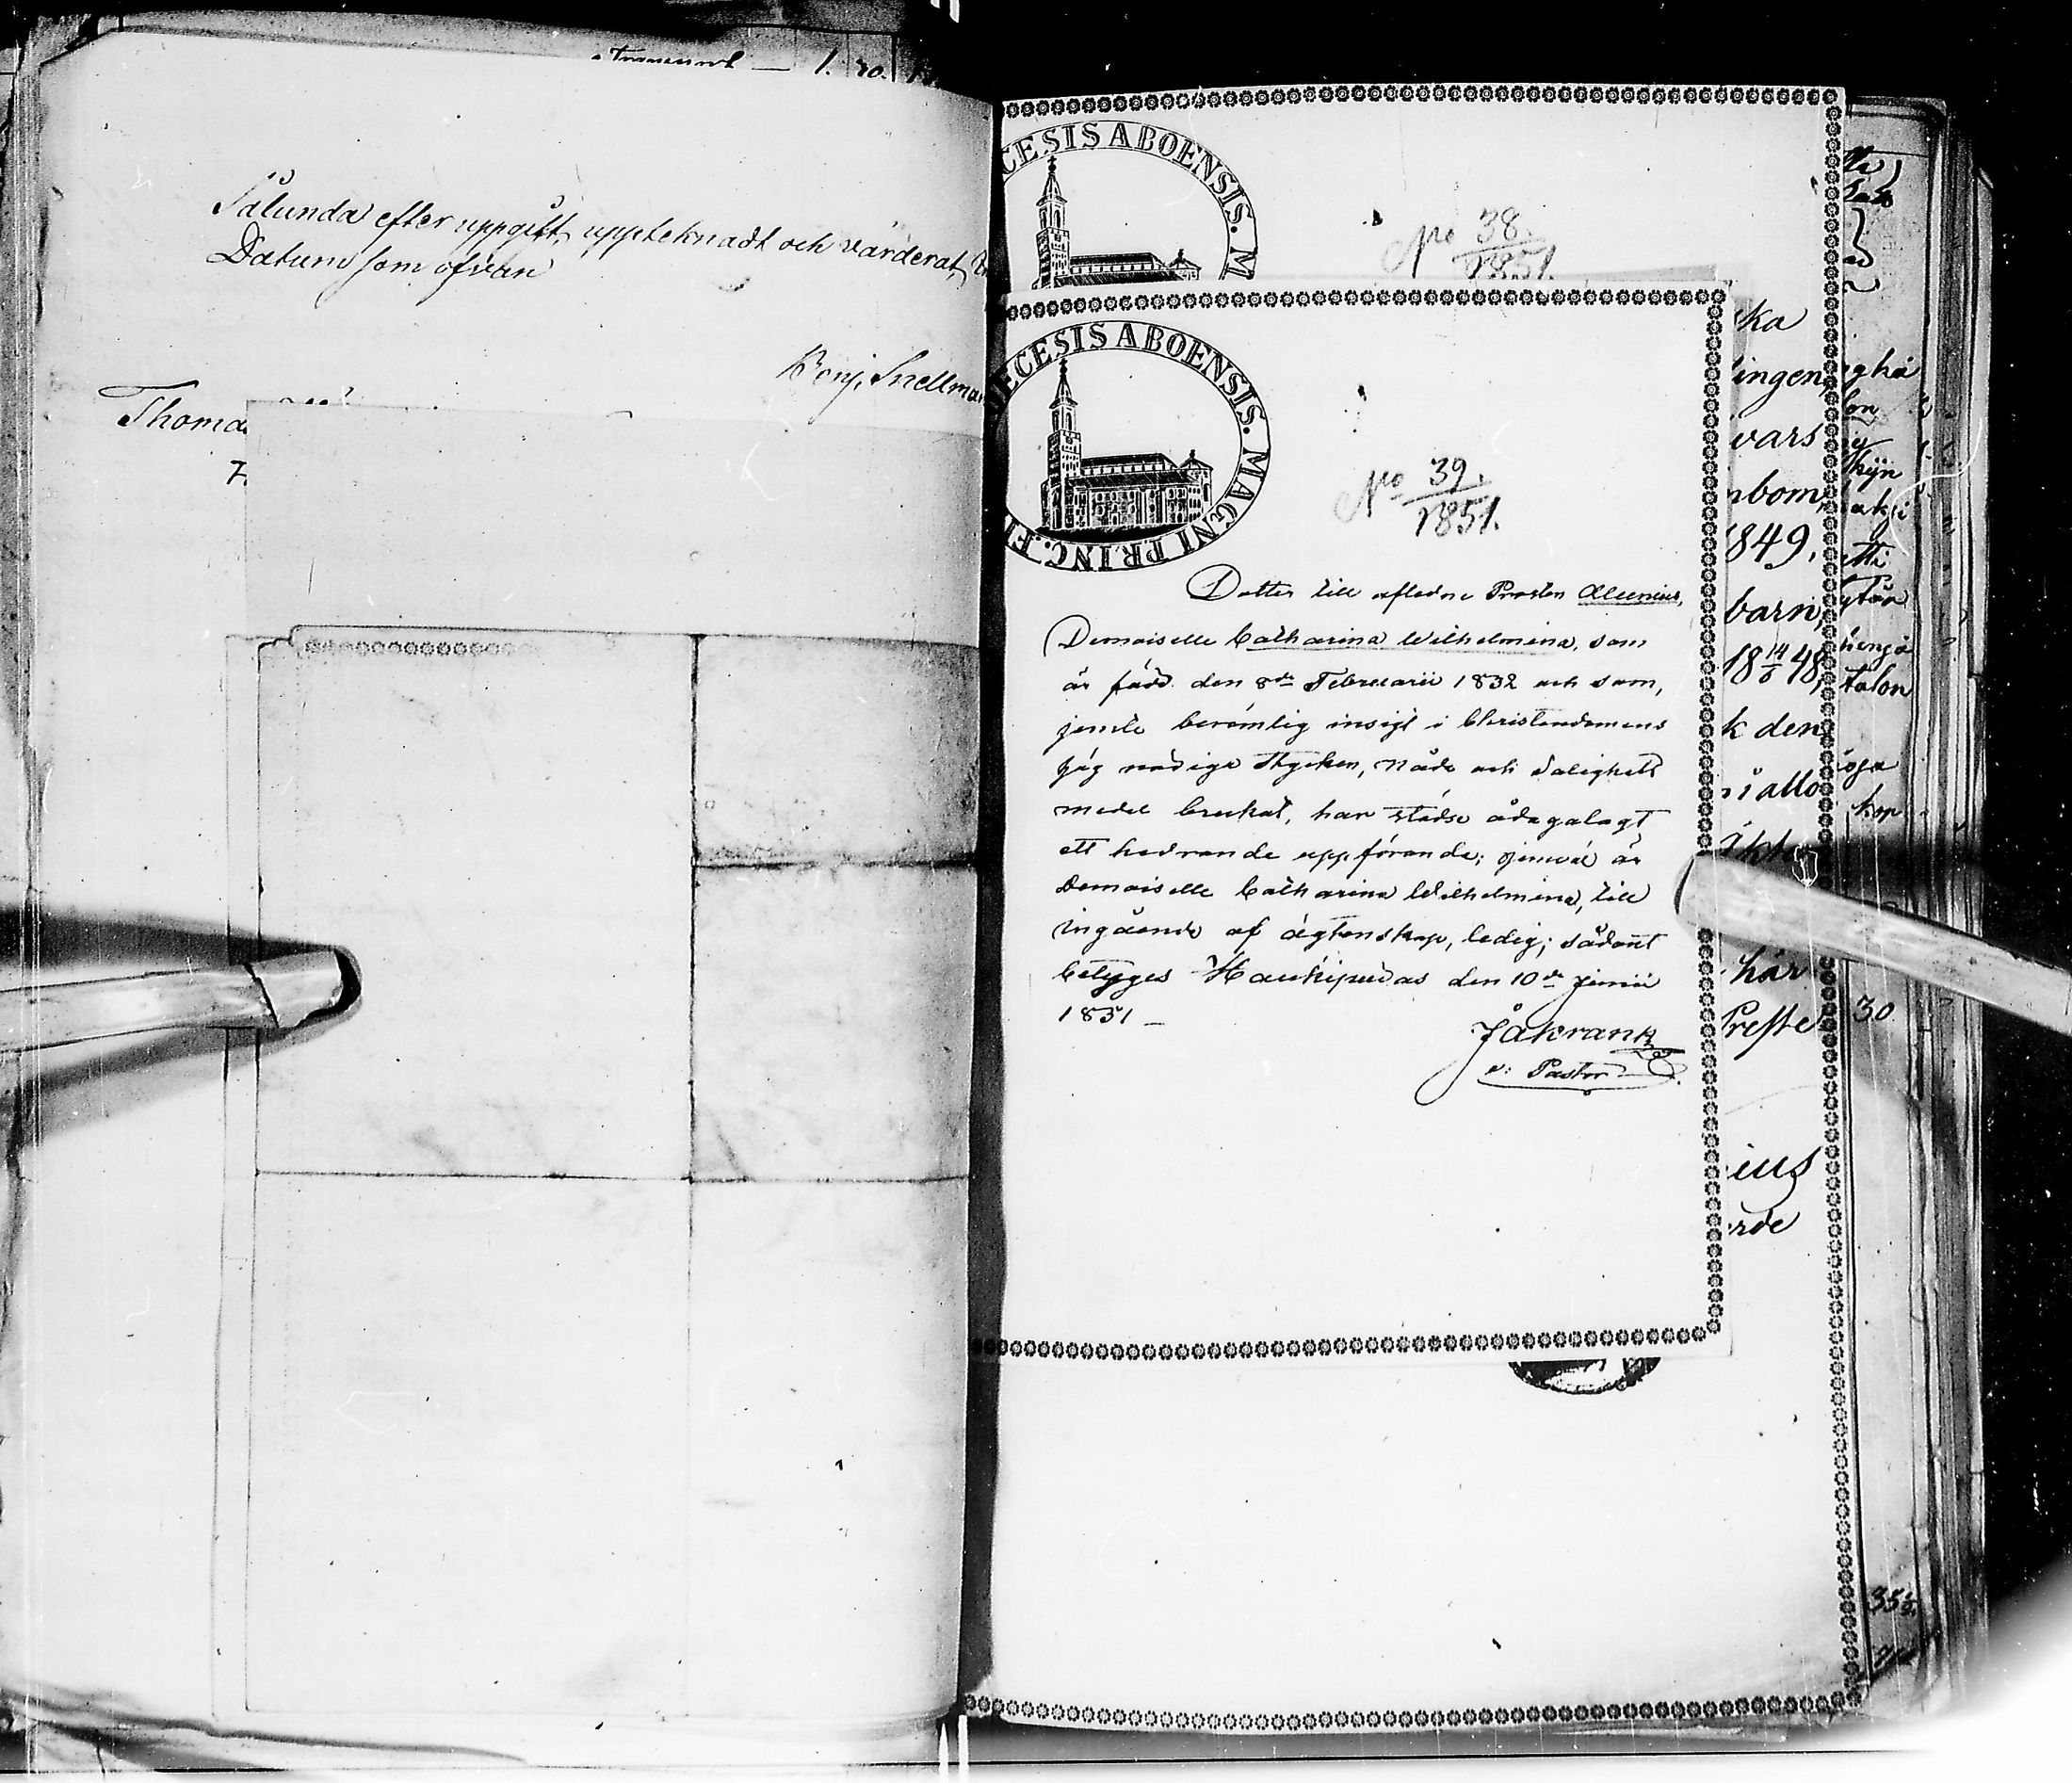 Transport — 1. 20.
Sålunda efter uppgift, uppteknadt och värderat,
Datum som ofvan
Benj. Snellman
Thomas
CESIS ABOENSIS. M
No 38.
1851.
ECESIS ABOENSIS. MAGNI PRINC. FI
No 39.
1851.
Dotter till aflidne Prosten Alcenius,
Demoiselle Catharina Wilhelmina, som
är född den 8de Februarii 1832 och som,
jemte berömlig insigt i Christendomens
för nödiga stycken, nåde och salighets
medel brukat, har städse ådagalagt
ett hedrande uppförande; jemväl är
Demoiselle Catharina Wilhelmina, till
ingående af ägtenskap, ledig; sådant
betygas Haukipudas den 10de Junii
1851 —
J Åkrank
v: Pastor
ka
lingen,
vars
nbom,
1849.
barn,
18 14/6 48,
k den
i allo
här
Preste
ius
erde
talon
30